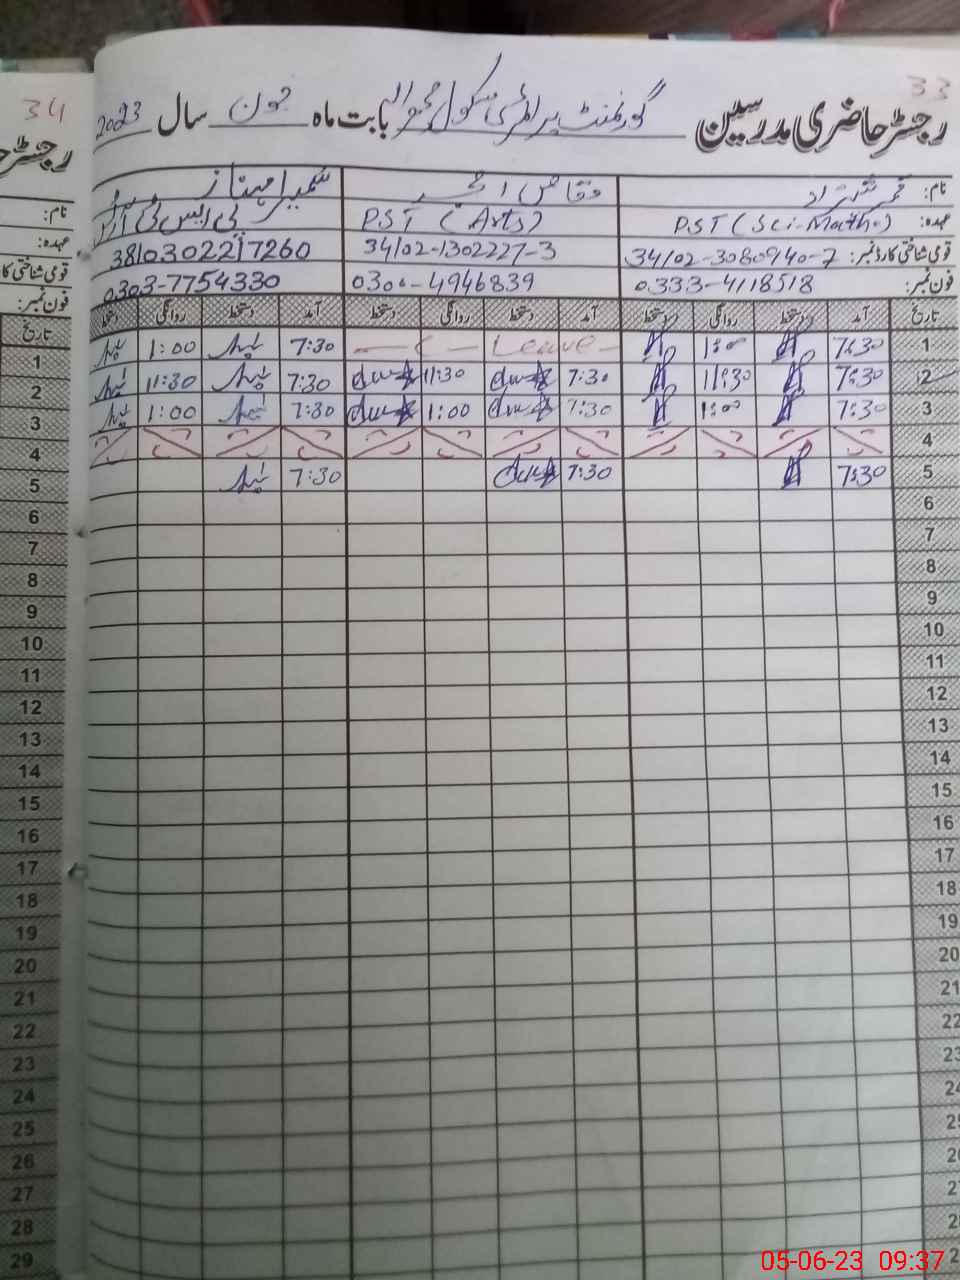 33
رجسٹر حاضری مدرسین گورنمنٹ پرائمری سکول بابت ماہ جون سال 2023
نام: قمر شہزاد وقاص احمد سمیرا مہناز
عہدہ: PST (Sci-Math) PST (Arts) پی ایس ٹی آرٹس
قومی شناختی کارڈ نمبر: 34102-3080940-7 34102-1302227-3 3810302217260
فون نمبر: 0333-4118518 0300-4946839 0303-7754330
تاریخ آمد دستخط روانگی دستخط آمد دستخط روانگی دستخط آمد دستخط روانگی دستخط
1 7:30 1:00 Leave 7:30 1:00
2 7:30 11:30 7:30 11:30 7:30 11:30
3 7:30 1:00 7:30 1:00 7:30 1:00
4
5 7:30 7:30 7:30
6
7
8
9
10
11
12
13
14
15
16
17
18
19
20
21
22
23
24
25
26
27
28
29
34
رجسٹر
نام:
عہدہ:
قومی شناختی
فون نمبر:
تاریخ
1
2
3
4
5
6
7
8
9
10
11
12
13
14
15
16
17
18
19
20
21
22
23
24
25
26
27
28
29
05-06-23 09:37